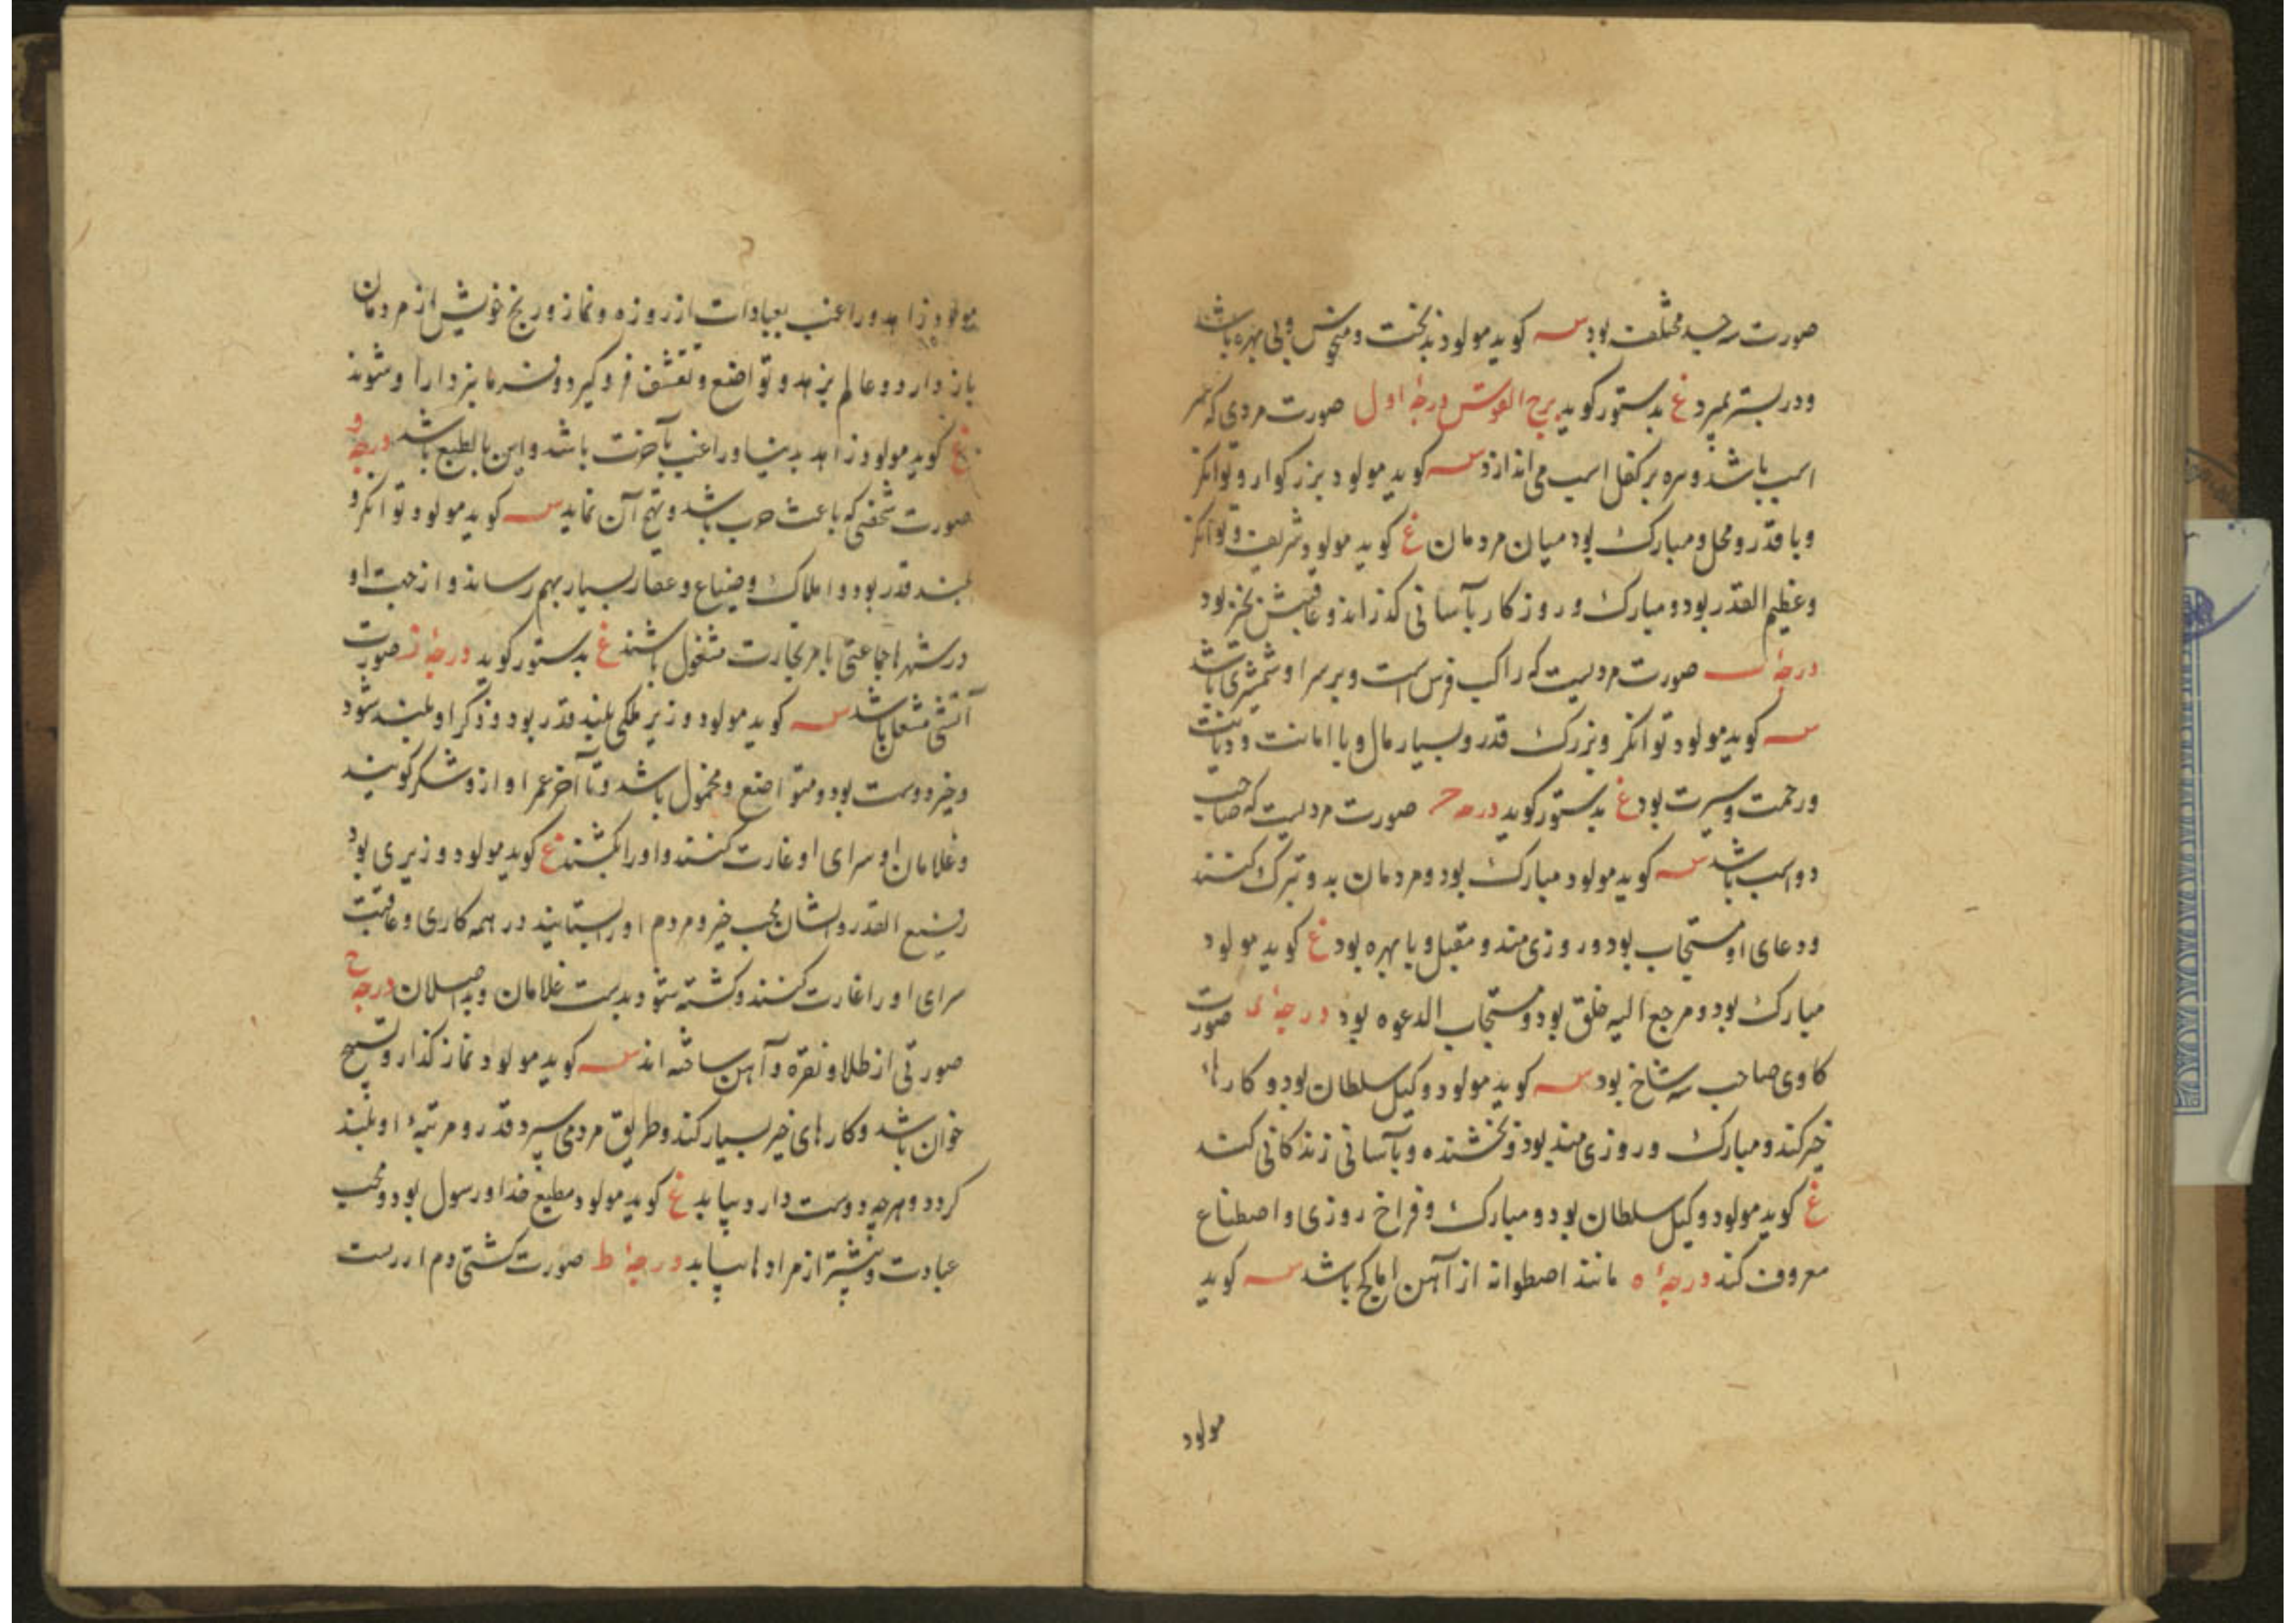 صورت سه جسد مختلف بود س کوید مولود بدبخت و منحوس و بی بهره باشد
و در بستر بمیرد غ بدستور کوید برج القوس درجهٔ اول صورت مردی که بر
اسب باشد و سر بر کفل اسب می اندازد س کوید مولود بزرکوار و توانکر
و با قدر و محل و مبارک بود میان مردمان غ کوید مولود شریف و توانکر
و عظیم القدر بود و مبارک و روزکار بآسانی کذراند و عاقبتش بخیر بود
درجهٔ ب صورت مردیست که راکب فرس است و بر سر او شمشیری باشد
س کوید مولود توانکر و بزرک قدر و بسیار مال و با امانت و دیانت
و رحمت و سیرت بود غ بدستور کوید درجه ح صورت مردیست که صاحب
دو اسب باشد س کوید مولود مبارک بود و مردمان بدو تبرک کنند
و دعای او مستجاب بود و روزی مند و مقبل و با بهره بود غ کوید مولود
مبارک بود و مرجع الیه خلق بود و مستجاب الدعوه بود درجهٔ د صورت
کاوی صاحب سه شاخ بود س کوید مولود وکیل سلطان بود و کارهاء
خیر کند و مبارک و روزی مند بود و بخشنده و بآسانی زندکانی کند
غ کوید مولود وکیل سلطان بود و مبارک و فراخ روزی و اصطناع
معروف کند درجهٔ ه مانند اصطوانه از آهن باشد س کوید
مولود
مولود زاهد و راغب بعبادات از روزه و نماز و رنج خویش از مردمان
باز دارد و عالم بزهد و تواضع و تقشف فرو کیرد و او شوند
غ کوید مولود زاهد بدنیا و راغب بآخرت باشد و این بالطبع باشد درجهٔ و
صورت شخصی که باعث حرب باشد و تهیج آن نماید س کوید مولود توانکر و
بلند قدر بود و املاک و ضیاع و عقار بسیار بهم رساند و از جهت او
در شهرها جماعتی بامر تجارت مشغول باشند غ بدستور کوید درجهٔ ز صورت
آتشی مشعل باشد س کوید مولود وزیر ملکی بلند قدر بود و ذکر او بلند شود
و خیر دوست بود و متواضع و مخمول باشد و تا آخر عمر او ازو شکر کویند
و غلامان او سرای او غارت کنند و او را بکشند غ کوید مولود وزیری بود
رفیع القدر والشان محب خیر و مردم او را بستایند در همه کاری و عاقبت
سرای او را غارت کنند و کشته شود بدست غلامان و بد اصلان درجهٔ ح
صورتی از طلا و نقره و آهن ساخته اند س کوید مولود نماز کذار و تسبیح
خوان باشد و کارهای خیر بسیار کند و طریق مردمی سپرد و قدر و مرتبهٔ او بلند
کردد و هرچه دوست دارد بیابد غ کوید مولود مطیع خدا و رسول بود و محب
عبادت و بیشتر از مرادها بیابد درجهٔ ط صورت کشتی